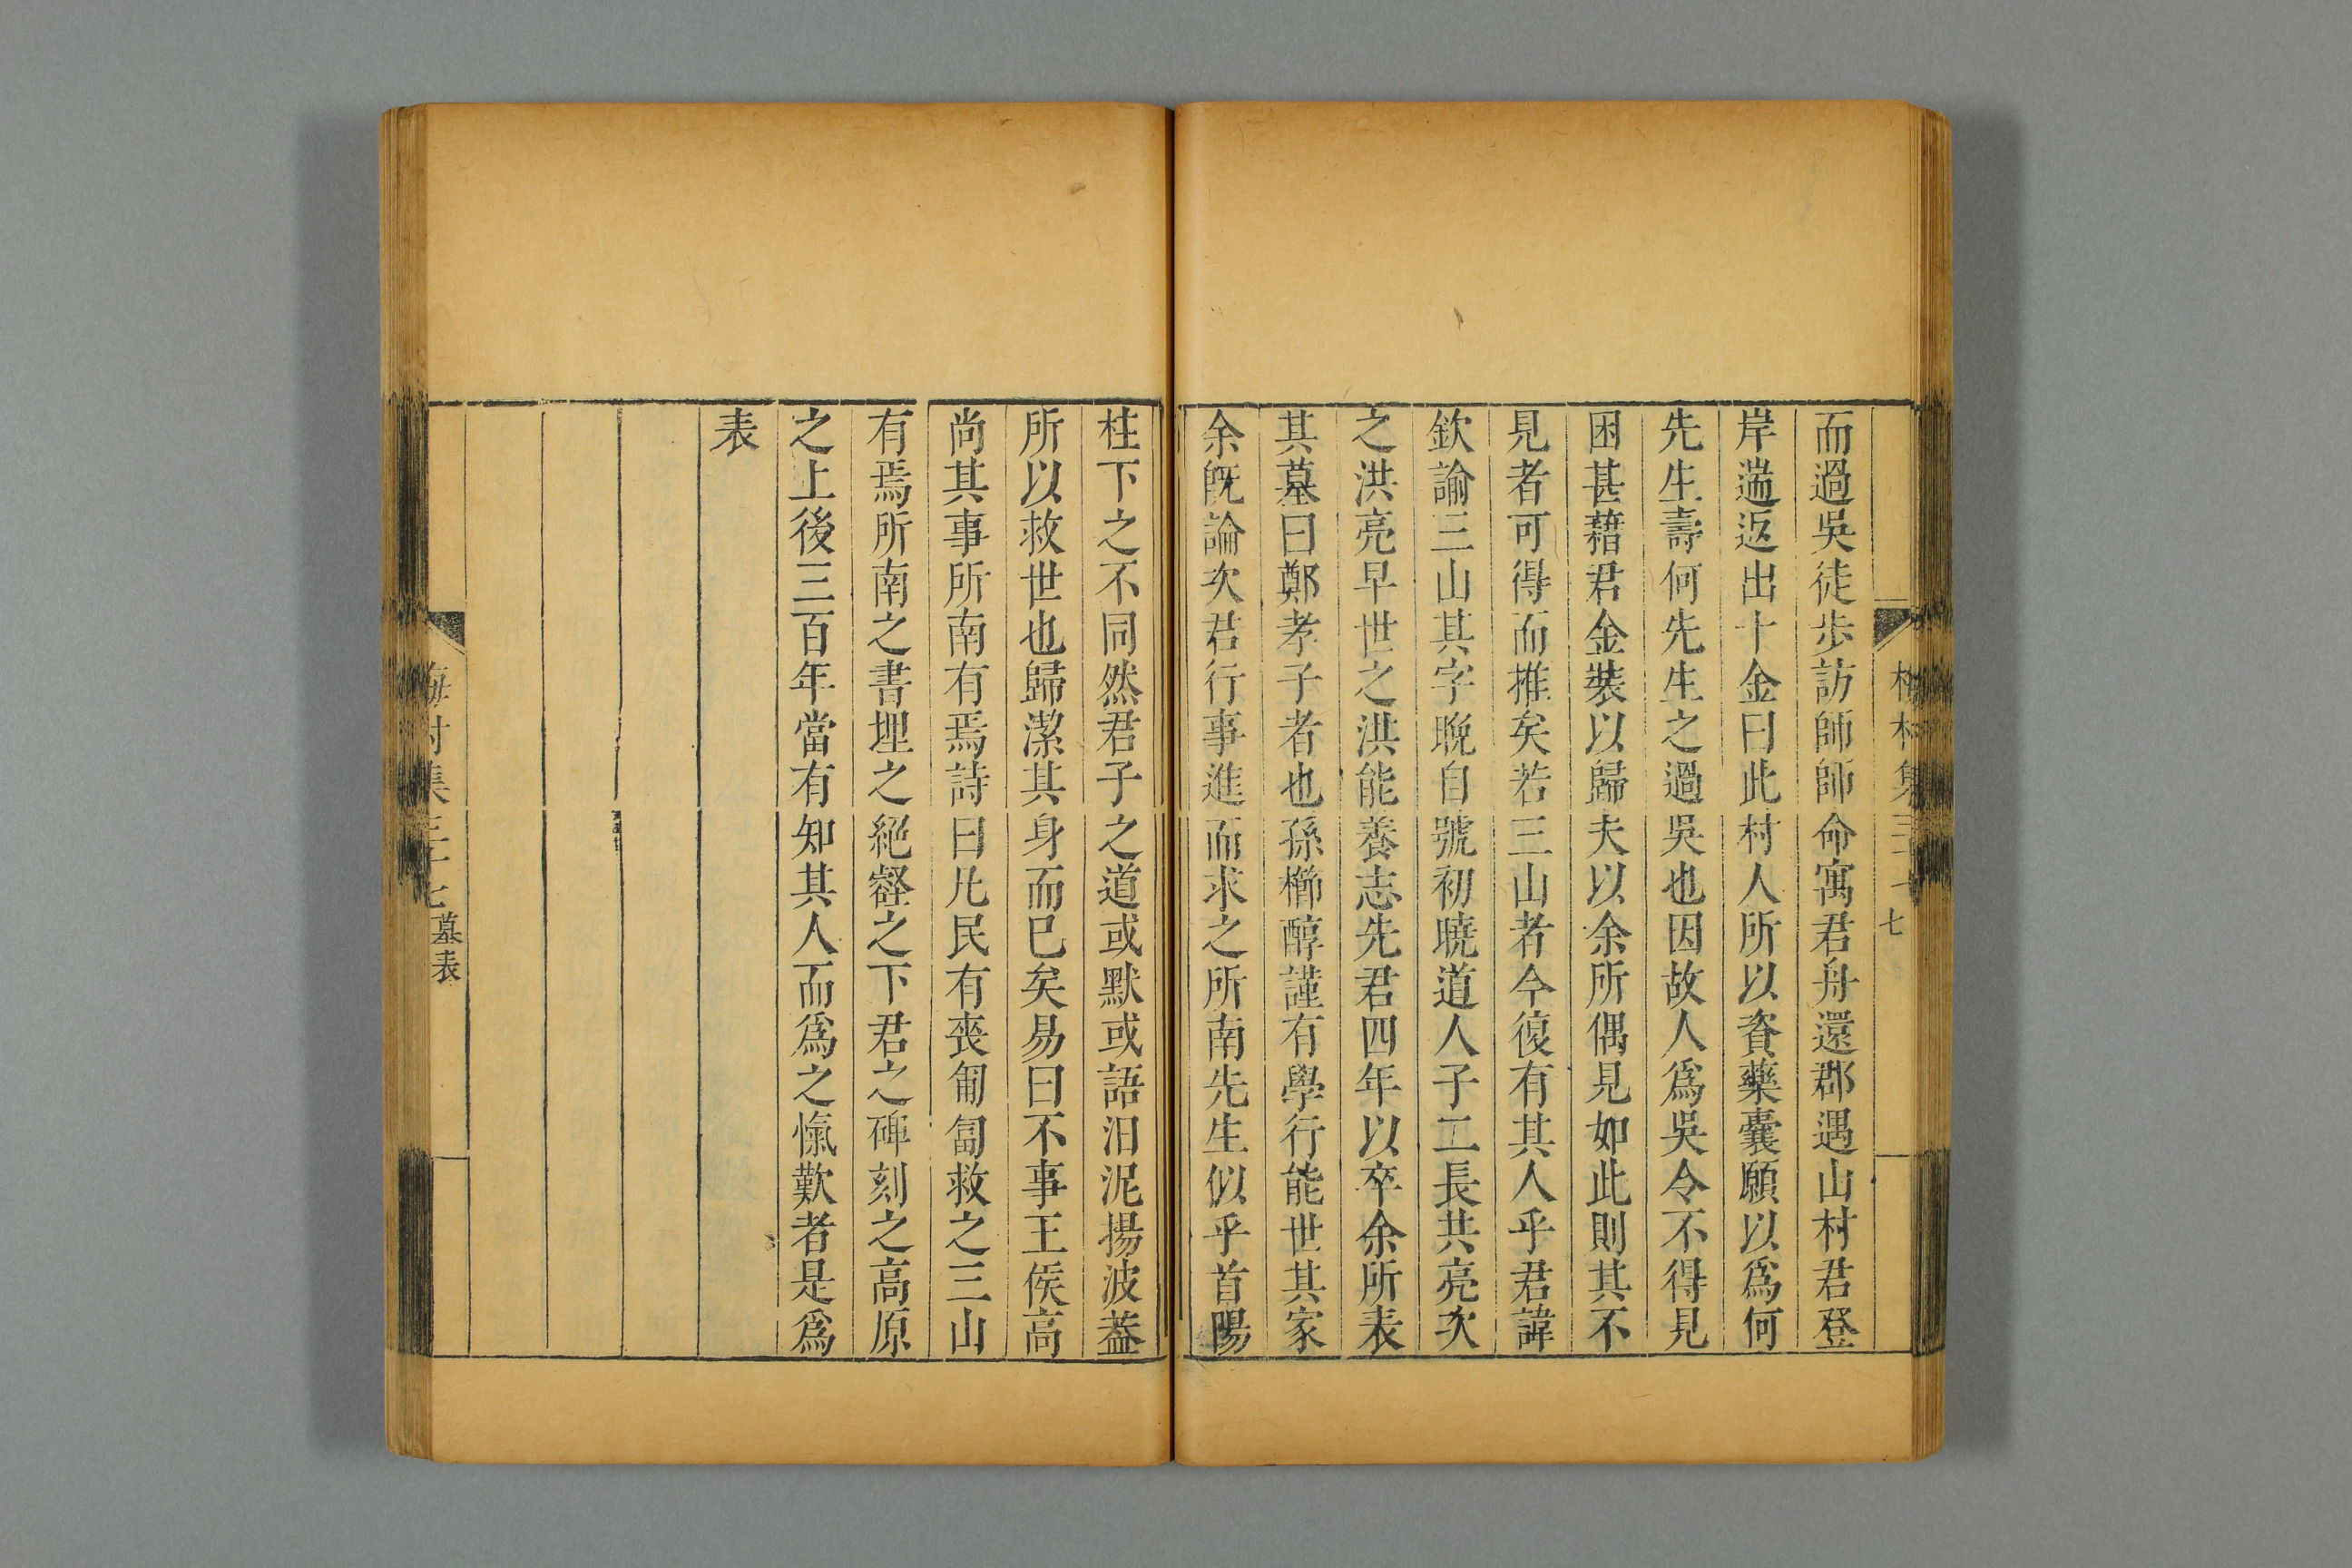 而過吳徒步訪師師命寓君舟還郡遇山村君登
岸遄返出十金曰此村人所以資藥囊願以爲何
先生壽何先生之過吳也因故人爲吳令不得見
困甚藉君金裝以歸夫以余所偶見如此則其不
見者可得而推矣若三山者今復有其人乎君諱
欽諭三山其字晚自號初曉道人子二長共亮次
之洪亮早世之洪能養志先君四年以卒余所表
其墓曰鄭孝子者也孫櫛醇謹有學行能世其家
余旣論次君行事進而求之所南先生似乎首陽
柱下之不同然君子之道或默或語汨泥揚波葢
所以救世也歸潔其身而已矣易曰不事王侯高
尚其事所南有焉詩曰凡民有喪匍匐救之三山
有焉所南之書埋之絕壑之下君之碑刻之高原
之上後三百年當有知其人而爲之愾歎者是爲
表
梅村集三十七 墓表